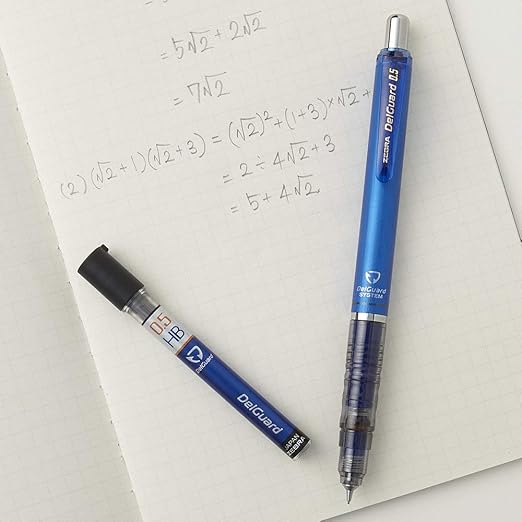 = 5√2 + 2√2
= 7√2
(2) (√2+1)(√2+3) = (√2)²+(1+3)×√2+
= 2 ÷ 4√2 + 3
= 5 + 4√2
ZEBRA DelGuard 0.5
DelGuard
SYSTEM
0.5
HB
DelGuard
DelGuard
JAPAN
ZEBRA